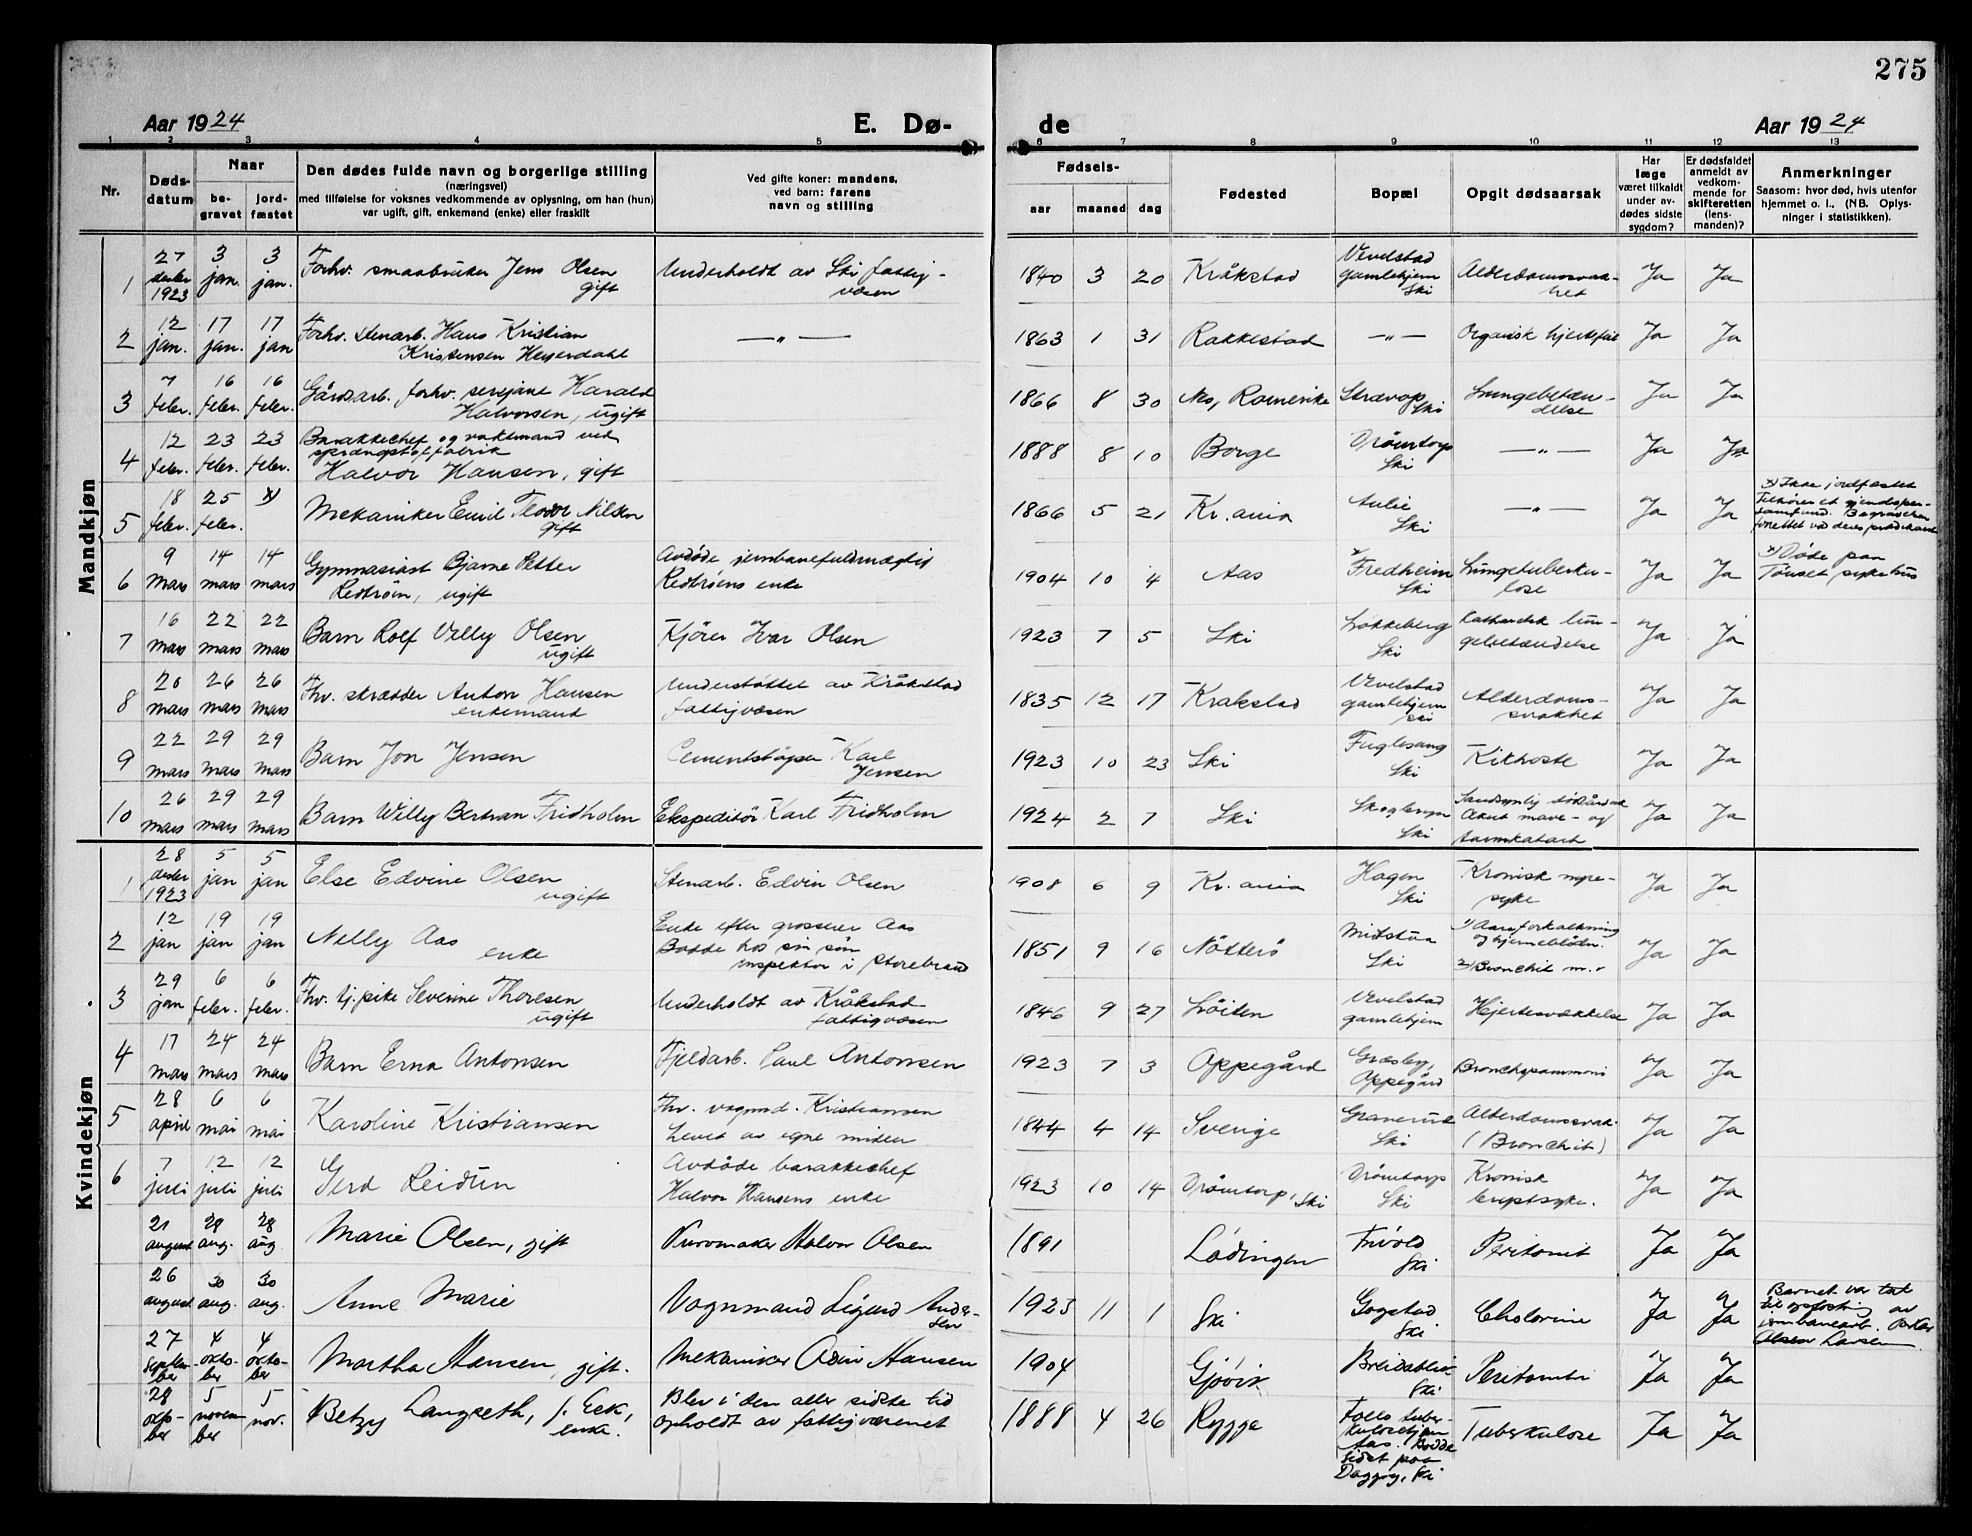 275
Aar 1924 E. Dø- de Aar 1924
1 2 3 4 5 6 7 8 9 10 11 12 13
Nr. Døds-datum Naar be-gravet jord-fæstet
Den dødes fulde navn og borgerlige stilling
(næringsvei)
med tilføielse for voksnes vedkommende av oplysning, om han (hun)
var ugift, gift, enkemand (enke) eller fraskilt
Ved gifte koner: mandens,
ved barn: farens
navn og stilling
Fødsels- aar maaned dag
Fødested Bopæl Opgit dødsaarsak
Har læge været tilkaldt under av-dødes sidste sygdom?
Er dødsfaldet anmeldt av vedkom-mende for skifteretten (lens-manden)?
Anmerkninger
Saasom: hvor død, hvis utenfor hjemmet o. l., (NB. Oplys-ninger i statistikken).
Mandkjøn
1 27 desbr 1923 3 jan. 3 jan. Forhv. smaabruker Jens Olsen gift Underholdt av Ski fattig-væsen 1840 3 20 Kråkstad Vevelstad gamlehjem Ski Alderdomssvak-het Ja Ja
2 12 jan. 17 jan. 17 jan Forhv. stenarb. Hans Kristian Kristensen Heyerdahl —„— 1863 1 31 Rakkestad —„— Organisk hjertefeil Ja Ja
3 7 febr. 16 febr. 16 febr. Gårdsarb. forhv. sersjant Harald Halvorsen, ugift 1866 8 30 Nes, Romerike Ski Lungebetæn-delse Ja Ja
4 12 febr. 23 febr. 23 febr. Barakkechef og vaktmand ved sprængstoffabrik Halvor Hansen, gift 1888 8 10 Borge Drömtorp Ski —„— Ja Ja
5 18 febr. 25 febr. x) Mekaniker Emil Teodor Nilsen gift 1866 5 21 Kr.ania Aulie Ski —„— Ja Ja x) Ikke jordfæstet Tilhörer et samfund. Begravelsen forrettet va deres prædikant
6 9 mars 14 mars 14 mars Gymnasiast Bjarne Petter Rediröin, ugift Avdöde jernbanefuldmægtig Rediröins enke 1904 10 4 Aas x Fredheim Ski Lungetuberku-lose Ja Ja x) Döde paa Tönset sykehus
7 16 mars 22 mars 22 mars Barn Rolf Villy Olsen ugift Kjörer Ivar Olsen 1923 7 5 Ski Lökkeberg Ski Katharalsk lun-gebetændelse Ja Ja
8 20 mars 26 mars 26 mars Fhv. skrædder Anton Hansen enkemand Understöttet av Kråkstad fattigvæsen 1835 12 17 Krakstad Vevelstad gamlehjem Ski Alderdoms-svakhet Ja Ja
9 22 mars 29 mars 29 mars Barn Jon Jensen Cementstöper Karl Jensen 1923 10 23 Ski Fuglesang Ski Kikhoste Ja Ja
10 26 mars 29 mars 29 mars Barn Willy Bertran Fridholm Ekspeditör Karl Fridholm 1924 2 7 Ski Ski Sandsynlig Akut mave- og tarmkatarh Ja Ja
Kvindekjøn
1 28 desbr 1923 5 jan 5 jan Else Edvine Olsen ugift Stenarb. Edvin Olsen 1908 6 9 Kr.ania Hagen Ski Kronisk nyre-syke Ja Ja
2 12 jan 19 jan 19 jan Nelly Aas enke Enke efter grosserer Aas Bodde hos sin sön inspektör i Storebrand 1851 9 16 Nötterö Midstua Ski 1) Aareforkalkning og hjerneblödn. 2) Bronchit m. Ja Ja
3 29 jan 6 febr. 6 febr. Fhv. tj.pike Severine Thoresen ugift Underholdt av Kråkstad fattigvæsen 1846 9 27 Löiten Vevelstad gamlehjem Hjertesvækkelse Ja Ja
4 17 mars 24 mars 24 mars Barn Erna Antonsen Fjeldarb. Paul Antonsen 1923 7 3 Oppegård Græsby, Oppegård Ja Ja
5 28 april 6 mai 6 mai Karoline Kristiansen Fhv. vognmd. Kristiansen Levet av egne midler 1844 4 14 Sverige Granerud Ski Alderdomssvak. (Bronchit) Ja Ja
6 7 juli 12 juli 12 juli Gerd Reidun Avdöde barakkechef Halvor Hansens enke 1923 10 14 Drömtorp, Ski Drömtorp Ski Kronisk Ja Ja
21 august 29 aug. 28 aug Marie Olsen, gift Halvor Olsen 1891 Lödingen Frivold Ski Peritonit Ja Ja
26 august 30 aug. 30 aug. Anne Marie Vognmand Sigurd Ander-sen 1923 11 1 Ski Gogstad Ski Cholerine Ja Ja Barnet var tat til opfostring av jernbanearb. Olsen Larsen
27 septem-ber 4 okto-ber 4 okto-ber Martha Hansen, gift. Mekaniker Odin Hansen 1904 Gjövik Breidablik Ski Ja Ja
28 okto-ber 5 novem-ber 5 nov. Betzy Langseth, f. Eek, enke. Blev i den aller sidste tid opholdt av fattigvæsenet 1888 4 26 Rygge Follo tuber-kulosehjem Aas. Bodde sidst paa Ski Tuberkulose Ja Ja